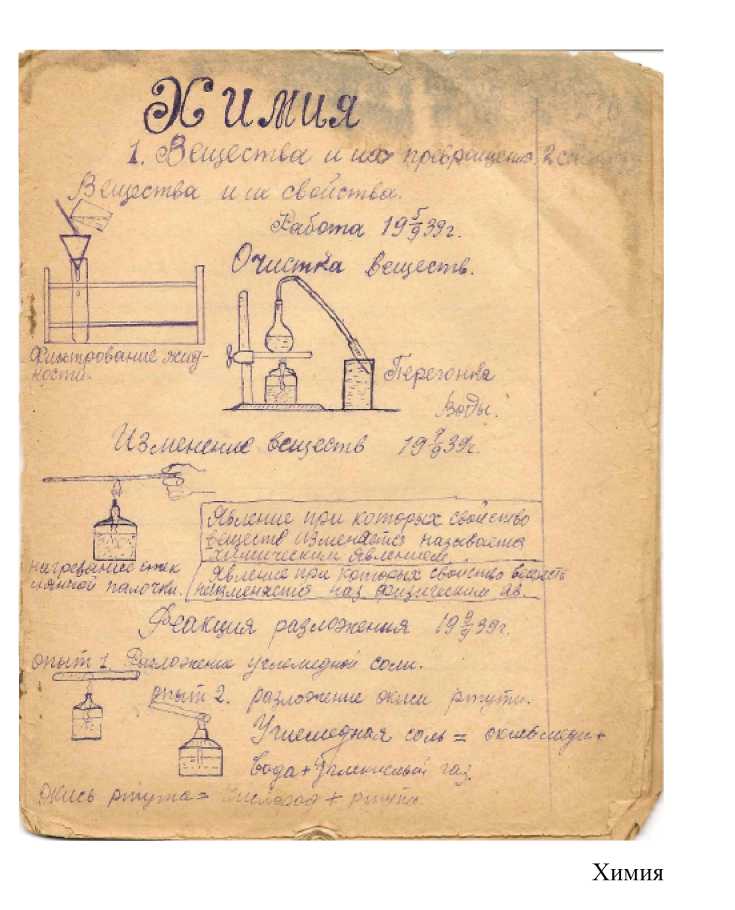 Химия
1. Вещества и их превращения, 2
Вещества и их свойства.
Работа 19 5/9 39г.
Очистка веществ.
Фильтрование жид-
ности.
Перегонка
воды.
Изменение веществ 19 /9 39г.
Явление при которых свойство
веществ изменяется называется
химическим явлением
Явление при которых свойство веществ
неизменяется наз. физическим яв.
нагревание стек
лянной палочки.
Реакция разложения 19 9/9 39г.
опыт 1. Разложение углемедной соли.
опыт 2. разложение окиси ртути.
Углемедная соль = окись меди +
вода + углекислый газ
окись ртути = кислород + ртуть
Химия